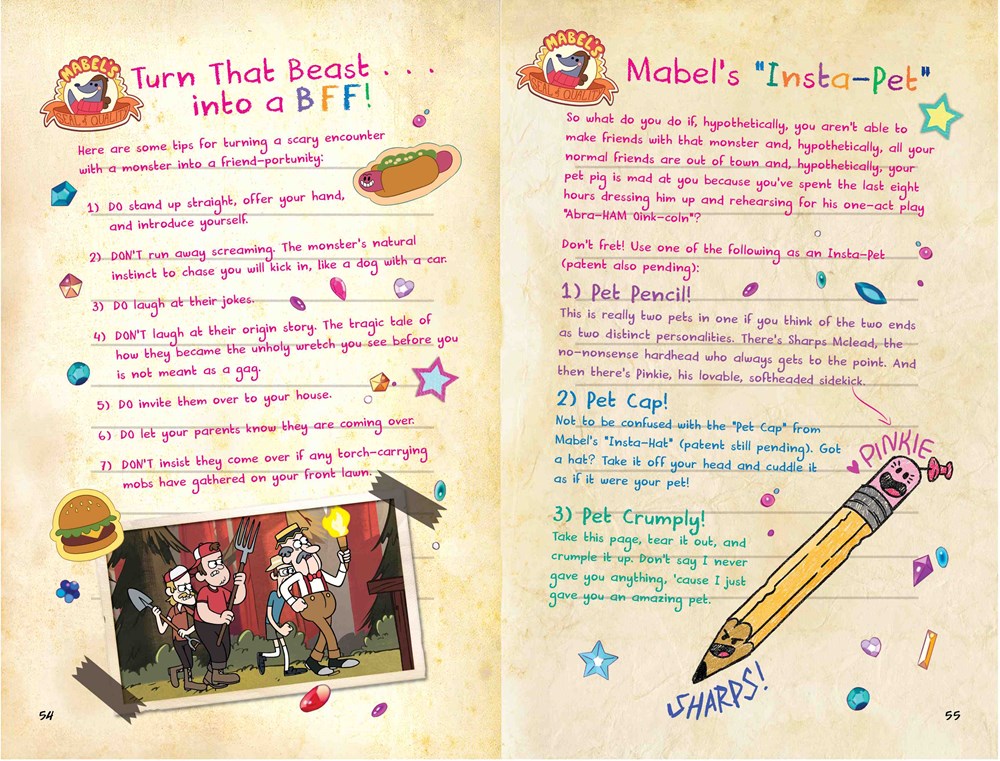 MABEL'S
SEAL of QUALITY
Turn That Beast . . .
into a BFF!
Here are some tips for turning a scary encounter
with a monster into a friend-portunity:
1) DO stand up straight, offer your hand,
and introduce yourself.
2) DON'T run away screaming. The monster's natural
instinct to chase you will kick in, like a dog with a car.
3) DO laugh at their jokes.
4) DON'T laugh at their origin story. The tragic tale of
how they became the unholy wretch you see before you
is not meant as a gag.
5) DO invite them over to your house.
6) DO let your parents know they are coming over.
7) DON'T insist they come over if any torch-carrying
mobs have gathered on your front lawn.
54
MABEL'S
SEAL of QUALITY
Mabel's "Insta-Pet"
So what do you do if, hypothetically, you aren't able to
make friends with that monster and, hypothetically, all your
normal friends are out of town and, hypothetically, your
pet pig is mad at you because you've spent the last eight
hours dressing him up and rehearsing for his one-act play
"Abra-HAM Oink-coln"?
Don't fret! Use one of the following as an Insta-Pet
(patent also pending):
1) Pet Pencil!
This is really two pets in one if you think of the two ends
as two distinct personalities. There's Sharps Mclead, the
no-nonsense hardhead who always gets to the point. And
then there's Pinkie, his lovable, softheaded sidekick.
2) Pet Cap!
Not to be confused with the "Pet Cap" from
Mabel's "Insta-Hat" (patent still pending). Got
a hat? Take it off your head and cuddle it
as if it were your pet!
PINKIE
3) Pet Crumply!
Take this page, tear it out, and
crumple it up. Don't say I never
gave you anything, 'cause I just
gave you an amazing pet.
SHARPS!
55